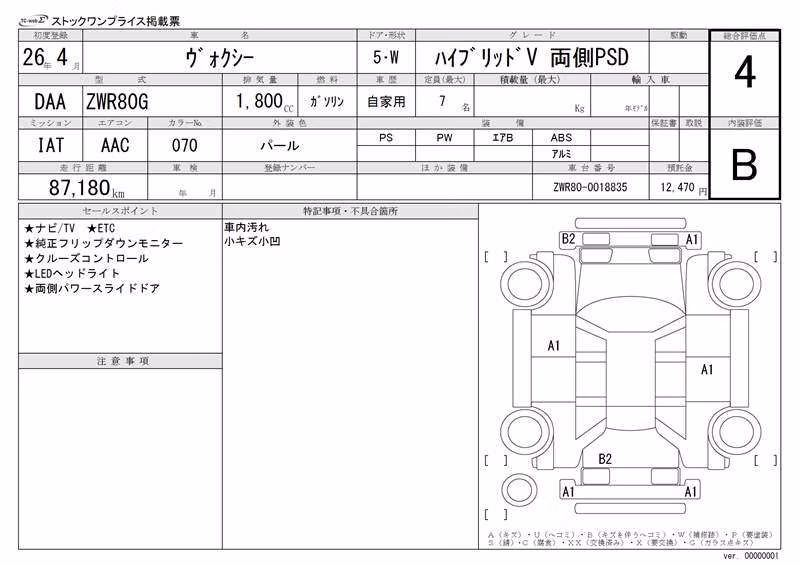 TC-webΣ ストックワンプライス掲載票
初度登録 車名 ドア・形状 グレード 駆動 総合評価点
26年 4月 ヴォクシー 5・W ハイブリッドV 両側PSD 4
型式 排気量 燃料 車歴 定員(最大) 積載量(最大) 輸入車
DAA ZWR80G 1,800CC ガソリン 自家用 7名 Kg 年モデル
ミッション エアコン カラーNo. 外装色 装備 保証書 取説 内装評価
IAT AAC 070 パール PS PW エアB ABS B
アルミ
走行距離 車検 登録ナンバー ほか装備 車台番号 預託金
87,180km 年 月 ZWR80-0018835 12,470円
セールスポイント
★ナビ/TV ★ETC
★純正フリップダウンモニター
★クルーズコントロール
★LEDヘッドライト
★両側パワースライドドア
注意事項
特記事項・不具合箇所
車内汚れ
小キズ小凹
B2 A1
[ ] [ ]
A1
A1
B2
[ ] [ ]
A1 A1
[ ]
A(キズ)・U(ヘコミ)・B(キズを伴うヘコミ)・W(補修跡)・P(要塗装)
S(錆)・C(腐食)・XX(交換済み)・X(要交換)・G(ガラス点キズ)
ver. 00000001